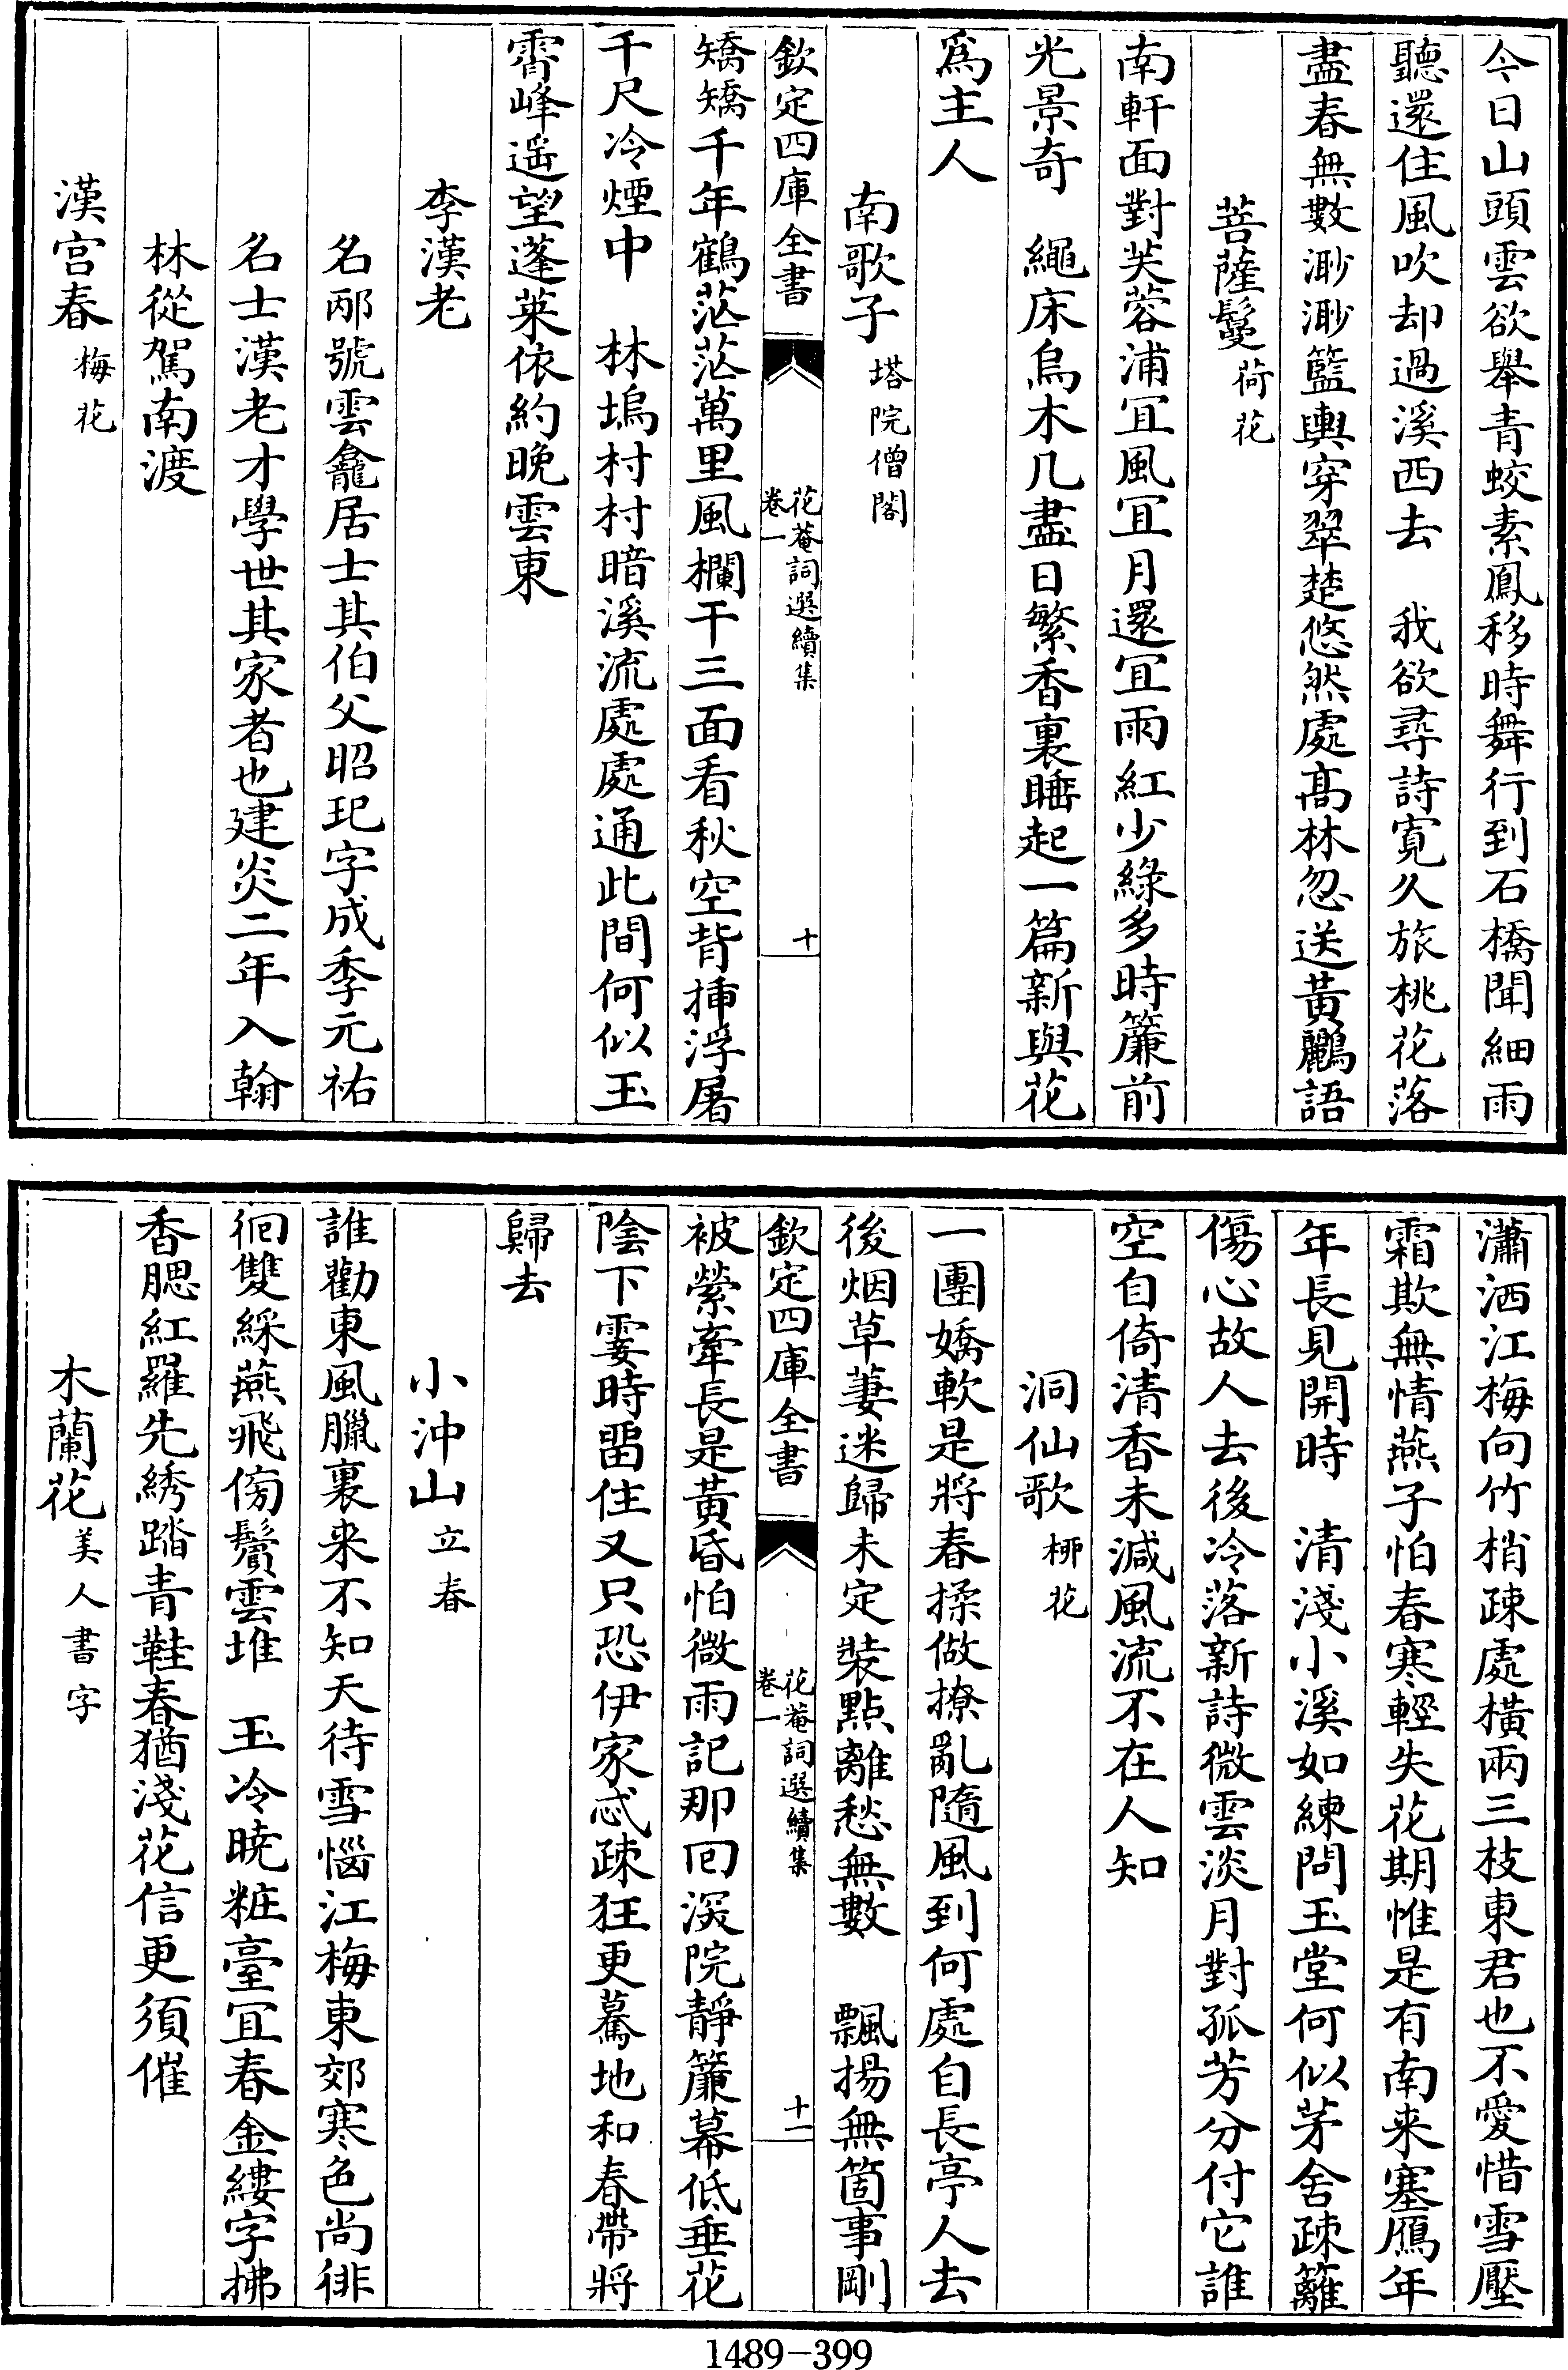 今日山頭雲欲舉青蛟素鳳移時舞行到石橋聞細雨
聽還住風吹却過溪西去　我欲尋詩寛久旅桃花落
盡春無數渺渺籃輿穿翠楚悠然處髙林忽送黄鸝語
菩薩鬘荷花
南軒面對芙蓉浦宜風宜月還宜雨紅少綠多時簾前
光景奇　繩床烏木几盡日繁香裏睡起一篇新與花
爲主人
南歌子塔院僧閣
欽定四庫全書
花菴詞選續集
卷一
十
矯矯千年鶴茫茫萬里風欄干三面看秋空背揷浮屠
千尺冷煙中　林塢村村暗溪流處處通此間何似玉
霄峰遥望蓬萊依約晚雲東
李漢老
名邴號雲龕居士其伯父昭玘字成季元祐
名士漢老才學世其家者也建炎二年入翰
林從駕南渡
漢宫春梅花
瀟洒江梅向竹梢疎處横兩三枝東君也不愛惜雪壓
霜欺無情燕子怕春寒輕失花期惟是有南来塞鴈年
年長見開時　清淺小溪如練問玉堂何似茅舍疎籬
傷心故人去後冷落新詩微雲淡月對孤芳分付它誰
空自倚清香未減風流不在人知
洞仙歌栁花
一團嬌軟是將春揉做撩亂隨風到何處自長亭人去
後烟草萋迷歸未定裝點離愁無數　飄揚無箇事剛
欽定四庫全書
花菴詞選續集
卷一
十一
被縈牽長是黄昏怕微雨記那回深院靜簾幕低垂花
陰下霎時畱住又只恐伊家忒疎狂更驀地和春帶將
歸去
小沖山立春
誰勸東風臘裏来不知天待雪惱江梅東郊寒色尚徘
徊雙綵燕飛傍鬢雲堆　玉冷曉粧臺宜春金縷字拂
香腮紅羅先綉踏青鞋春猶淺花信更須催
木蘭花美人書字
1489-399